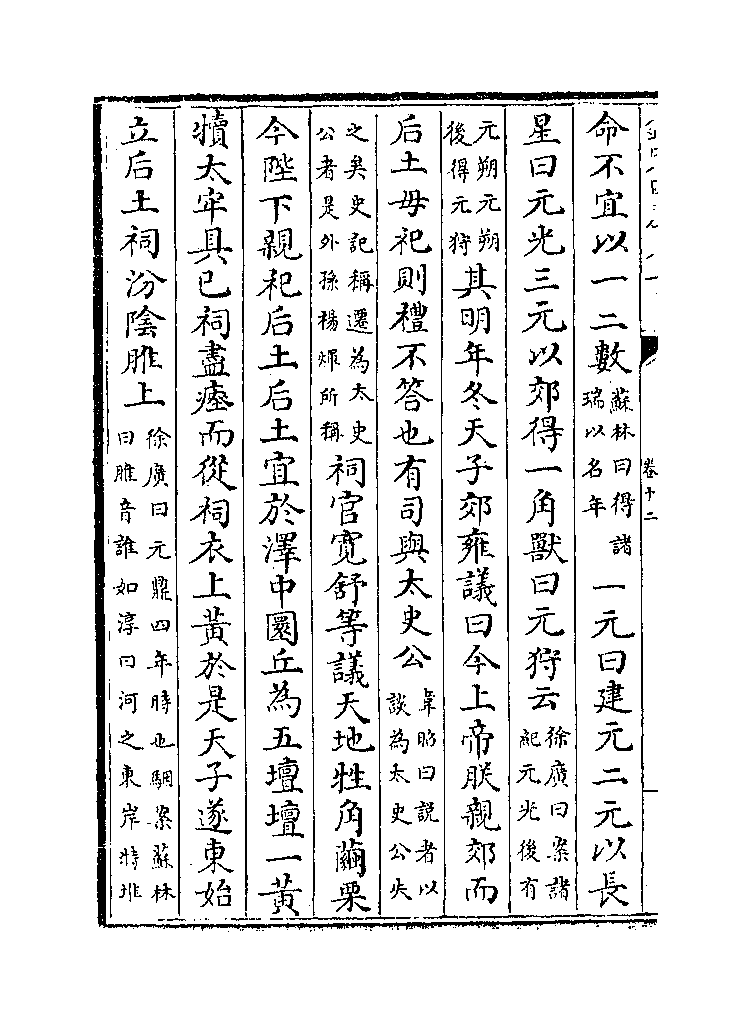 命不宜以一二數蘇林曰得諸瑞以名年一元曰建元二元以長
星曰元光三元以郊得一角獸曰元狩云徐廣曰案諸紀元光後有
元朔元朔後得元狩其明年冬天子郊雍議曰今上帝朕親郊而
后土毋祀則禮不答也有司與太史公韋昭曰説者以談為太史公失
之矣史記稱遷為太史公者是外孫楊煇所稱祠官寛舒等議天地牲角繭栗
今陛下親祀后土后土宜於澤中圜丘為五壇壇一黃
犢太牢具已祠盡瘞而從祠衣上黃於是天子遂東始
立后土祠汾陰脽上徐廣曰元鼎四年時也駰案蘇林曰脽音誰如淳曰河之東岸特堆
卷十二